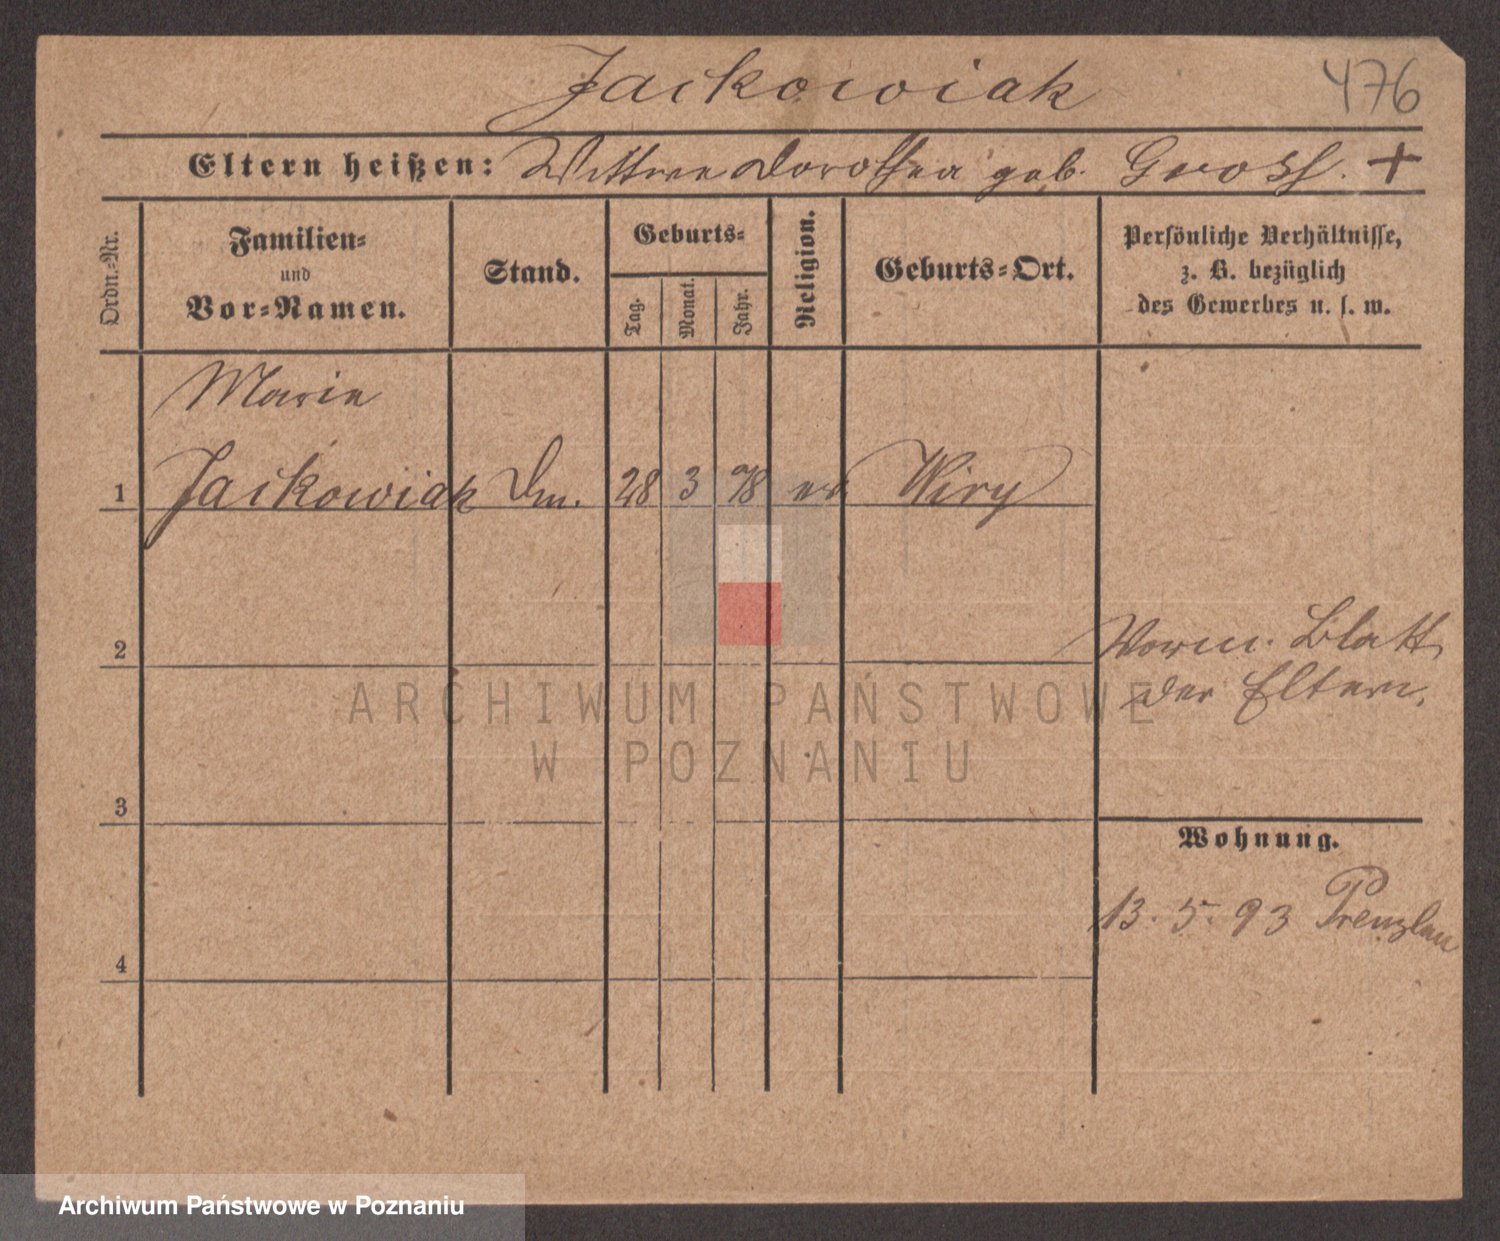 Jackowiak
476
Eltern heißen: Wittwe Dorothea geb. Gross. +
Ordn.-Nr.
Familien-
und
Vor-Namen.
Stand.
Geburts-
Tag.
Monat.
Jahr.
Religion.
Geburts-Ort.
Persönliche Verhältnisse,
z. B. bezüglich
des Gewerbes u. s. w.
Marie
1 Jackowiak 28 3 78 Wiry
2
Vorm. Blatt
der Eltern.
ARCHIWUM PAŃSTWOWE
W POZNANIU
3
Wohnung.
13. 5. 93 Prenzlau
4
Archiwum Państwowe w Poznaniu